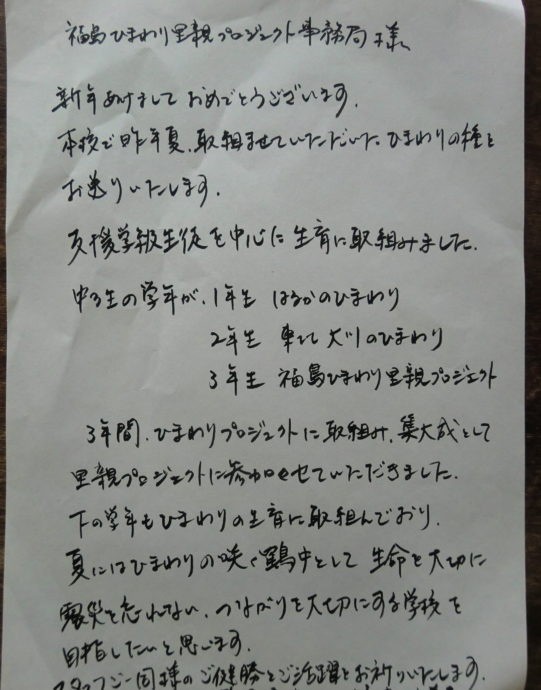 福島ひまわり里親プロジェクト事務局 様
新年あけまして おめでとうございます。
本校で昨年夏、取組ませていただいた ひまわりの種を
お送りいたします。
支援学級生徒を中心に 生育に取組みました。
中3生の学年が、1年生 はるかのひまわり
2年生 東北 大川のひまわり
3年生 福島ひまわり里親プロジェクト
3年間、ひまわりプロジェクトに取組み、集大成として
里親プロジェクトに参加させていただきました。
下の学年もひまわりの生育に取組んでおり、
夏にはひまわりの咲く 中として 生命を大切に
震災を忘れない、つながりを大切にする学校を
目指したいと思います。
スタッフ一同様の ご健勝とご活躍をお祈りいたします。